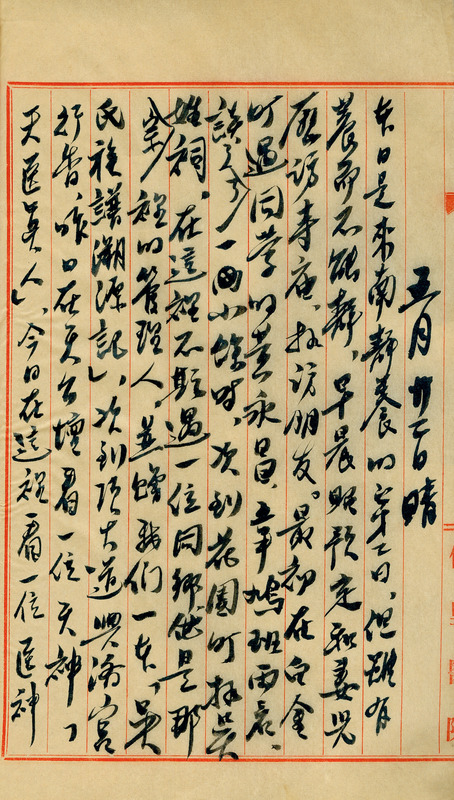 五月廿二日 晴
本日是來南靜養的第二日,但雖有
養而不能靜,早晨照預定和妻兒
歷訪寺廟,拜訪朋友。最初在白金
町遇同業的黃永昌、王鳩班兩君、
談了一回小餘時,次到花園町拜吳
姓祠,在這裡不期遇一位同鄉他是那
祭裡的管理人,並贈我們一本「吳
氏族譜溯源記」,次到頂大道興濟宮
行香,昨日在天公壇看一位天神「
天醫真人」,今日在這裡看一位醫神